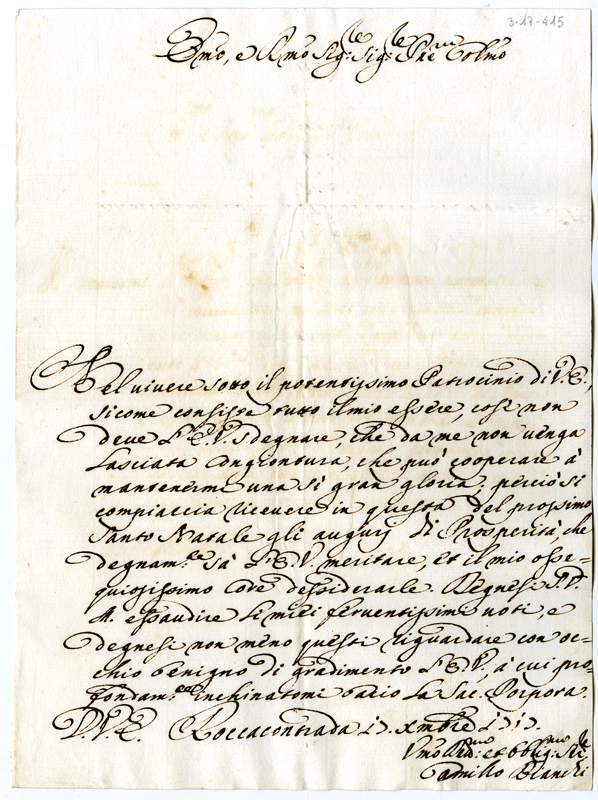 3-17-415
Emo, e Rmo Sig.re Sig.re Pne Colmo
Nel vivere sotto il potentissimo Patrocinio di V.E.,
sicome consiste tutto il mio essere, così non
deve l'E.V. sdegnare, che da me non venga
lasciata congiontura, che può cooperare à
mantenermi una sì gran gloria; perciò si
compiaccia ricevere in questa del prossimo
Santo Natale gli augurij di Prosperità, che
degnam.te sà l'E.V. meritare, et il mio osse=
quiosissimo desiderarle. Degnesi S.D.
M. essaudire li miei ferventissimi voti, e
degnesi non meno questi riguardare con oc=
chio benigno di gradimento l'E.V., à cui pro=
fondam.te inchinatomi bacio la Sac. Porpora.
D.V.E. Roccacontrada xmbre
Vmo et Obblig. 
Camillo Blanchi